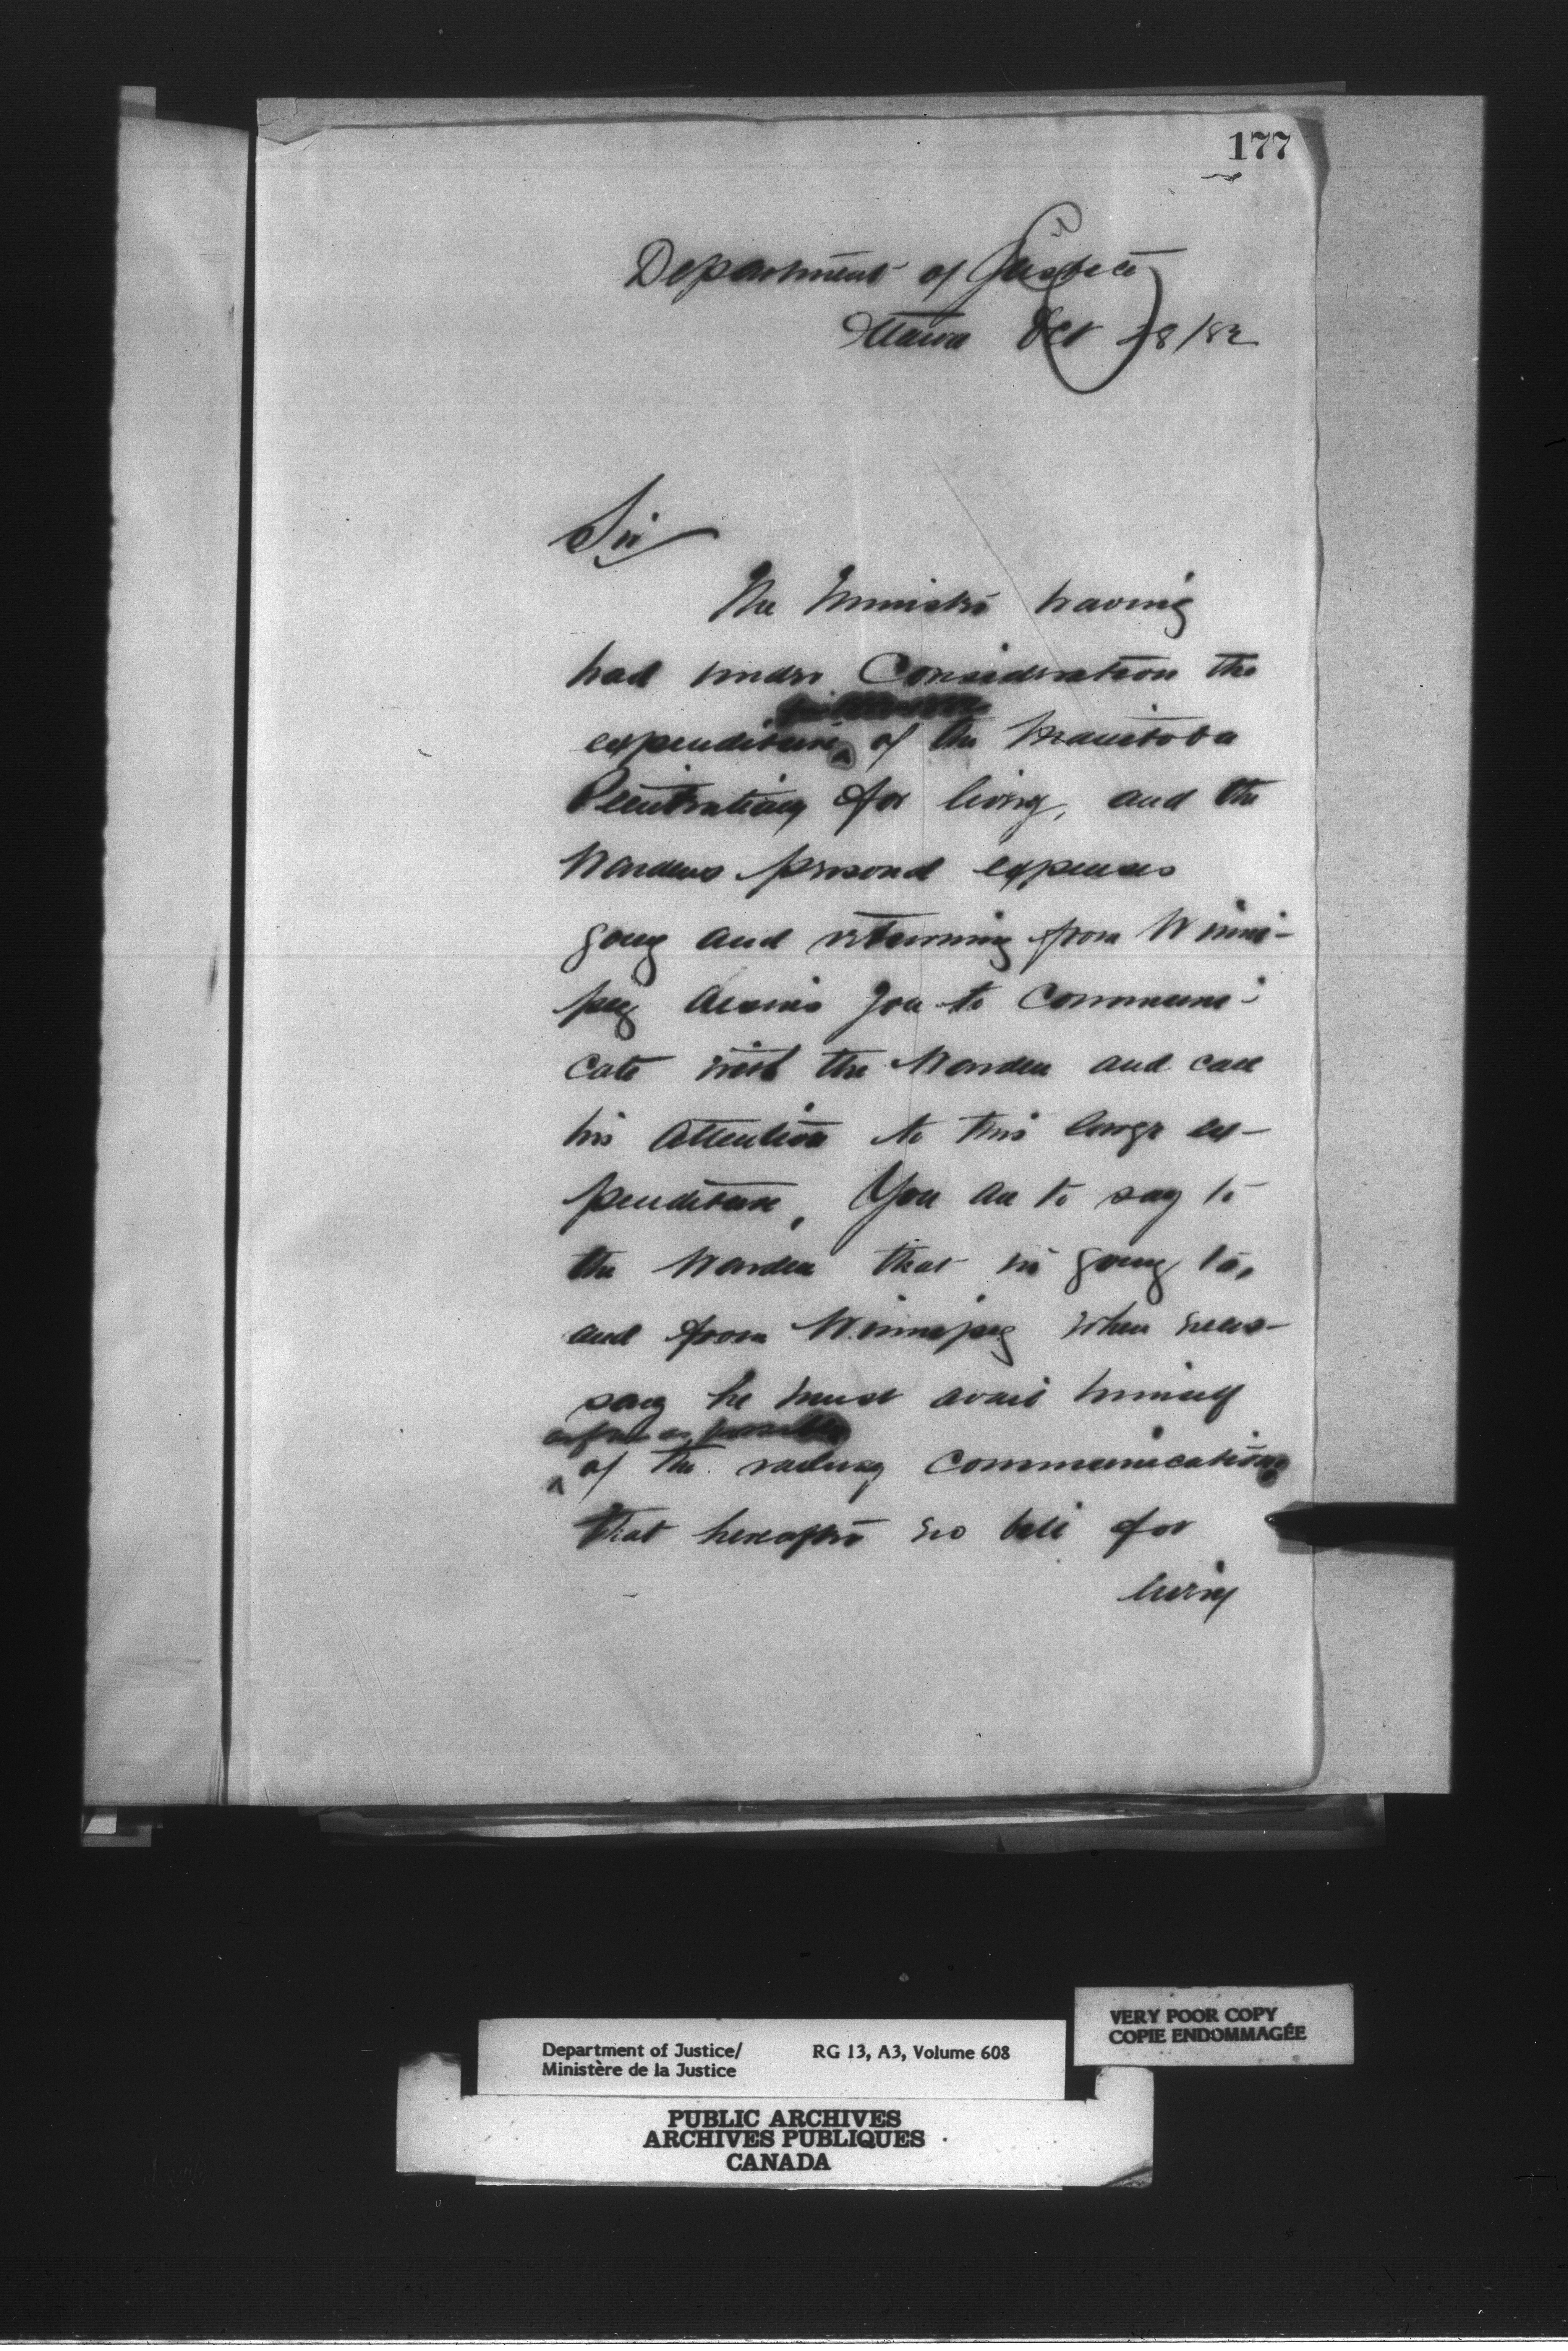 177
Department of Justice
Ottawa Oct 28/82
Sir
The Minister having
had under Consideration the
expenditure of the Manitoba
Penitentiary for livery, and the
Wardens personal expenses
going and returning from Winni-
peg desires you to Communi-
cate with the Warden and call
his attention to this large ex-
penditure, You are to say to
the Warden that in going to,
and from Winnipeg when neces-
sary he must avail himself
as far as possible
of the railway communication
that hereafter no bill for
livery
Department of Justice/
Ministère de la Justice
RG 13, A3, Volume 608
VERY POOR COPY
COPIE ENDOMMAGÉE
PUBLIC ARCHIVES
ARCHIVES PUBLIQUES
CANADA